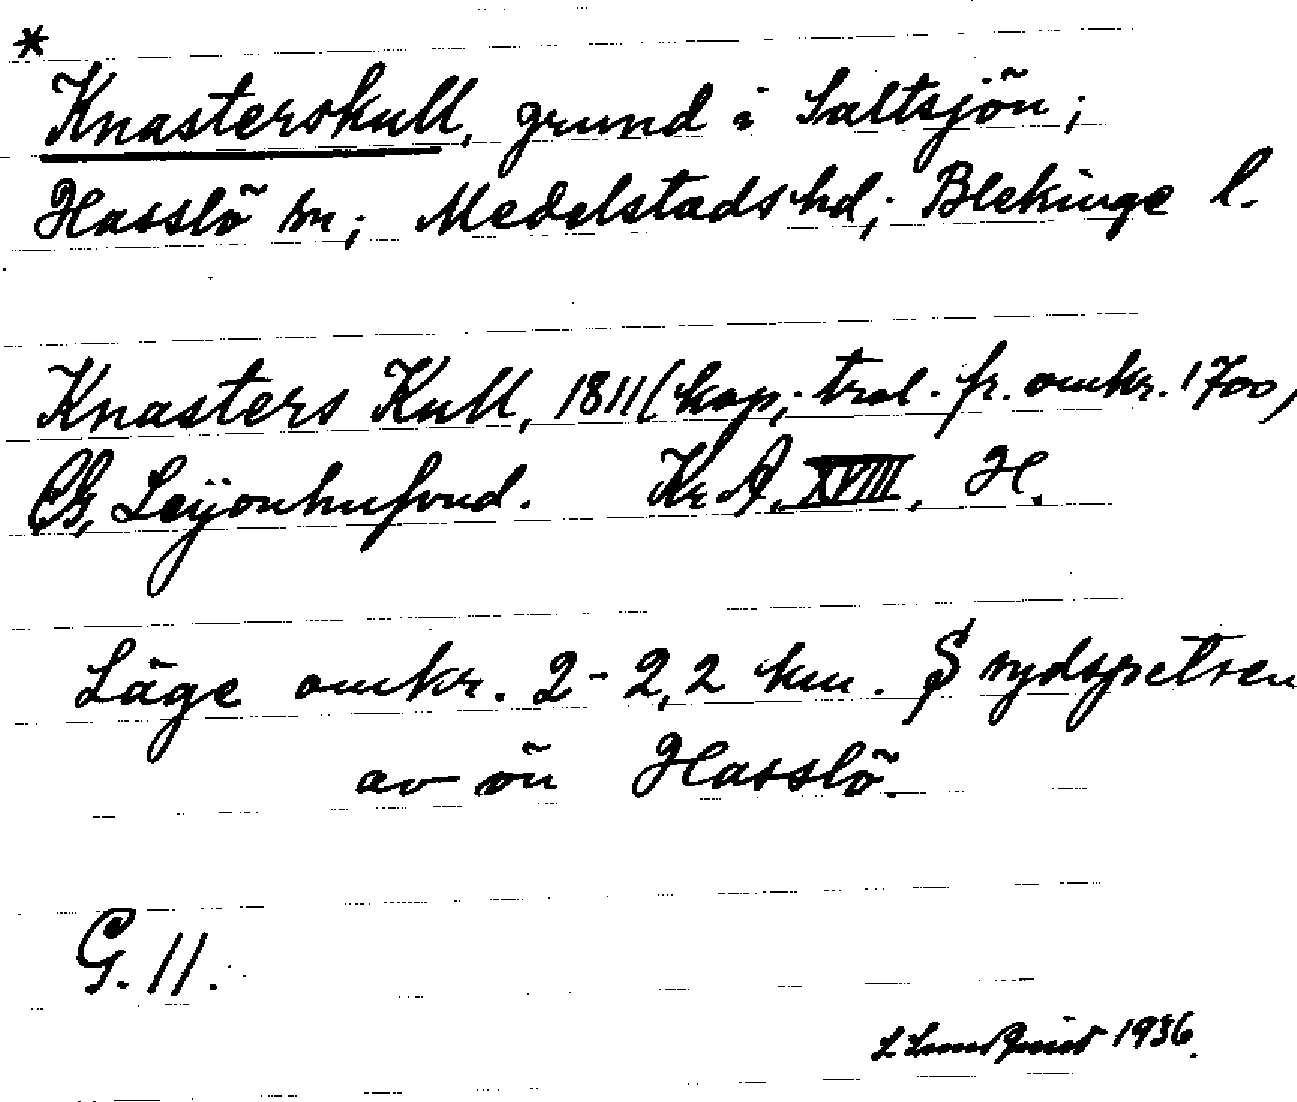 *
Knasterskull, grund i Saltsjön;
Hasslö sn; Medelstads hd; Blekinge l.
Knasters Kull, 1811 (kop; trol. fr. omkr. 1700,
CG, Leijonhufvud. Kr A. XVIII, H.
Läge omkr. 2-2,2 km. S sydspetsen
av ön Hasslö.
G. 11.
L Lindquist 1936.